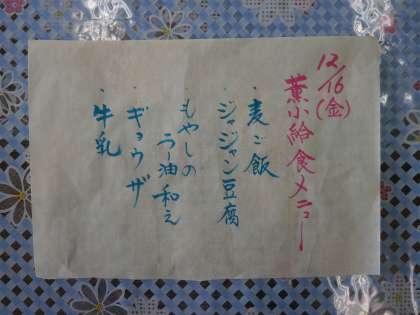 12/16(金)
薫小給食メニュー
・麦ご飯
・ジャジャン豆腐
・もやしの
ラー油和え
・ギョウザ
・牛乳